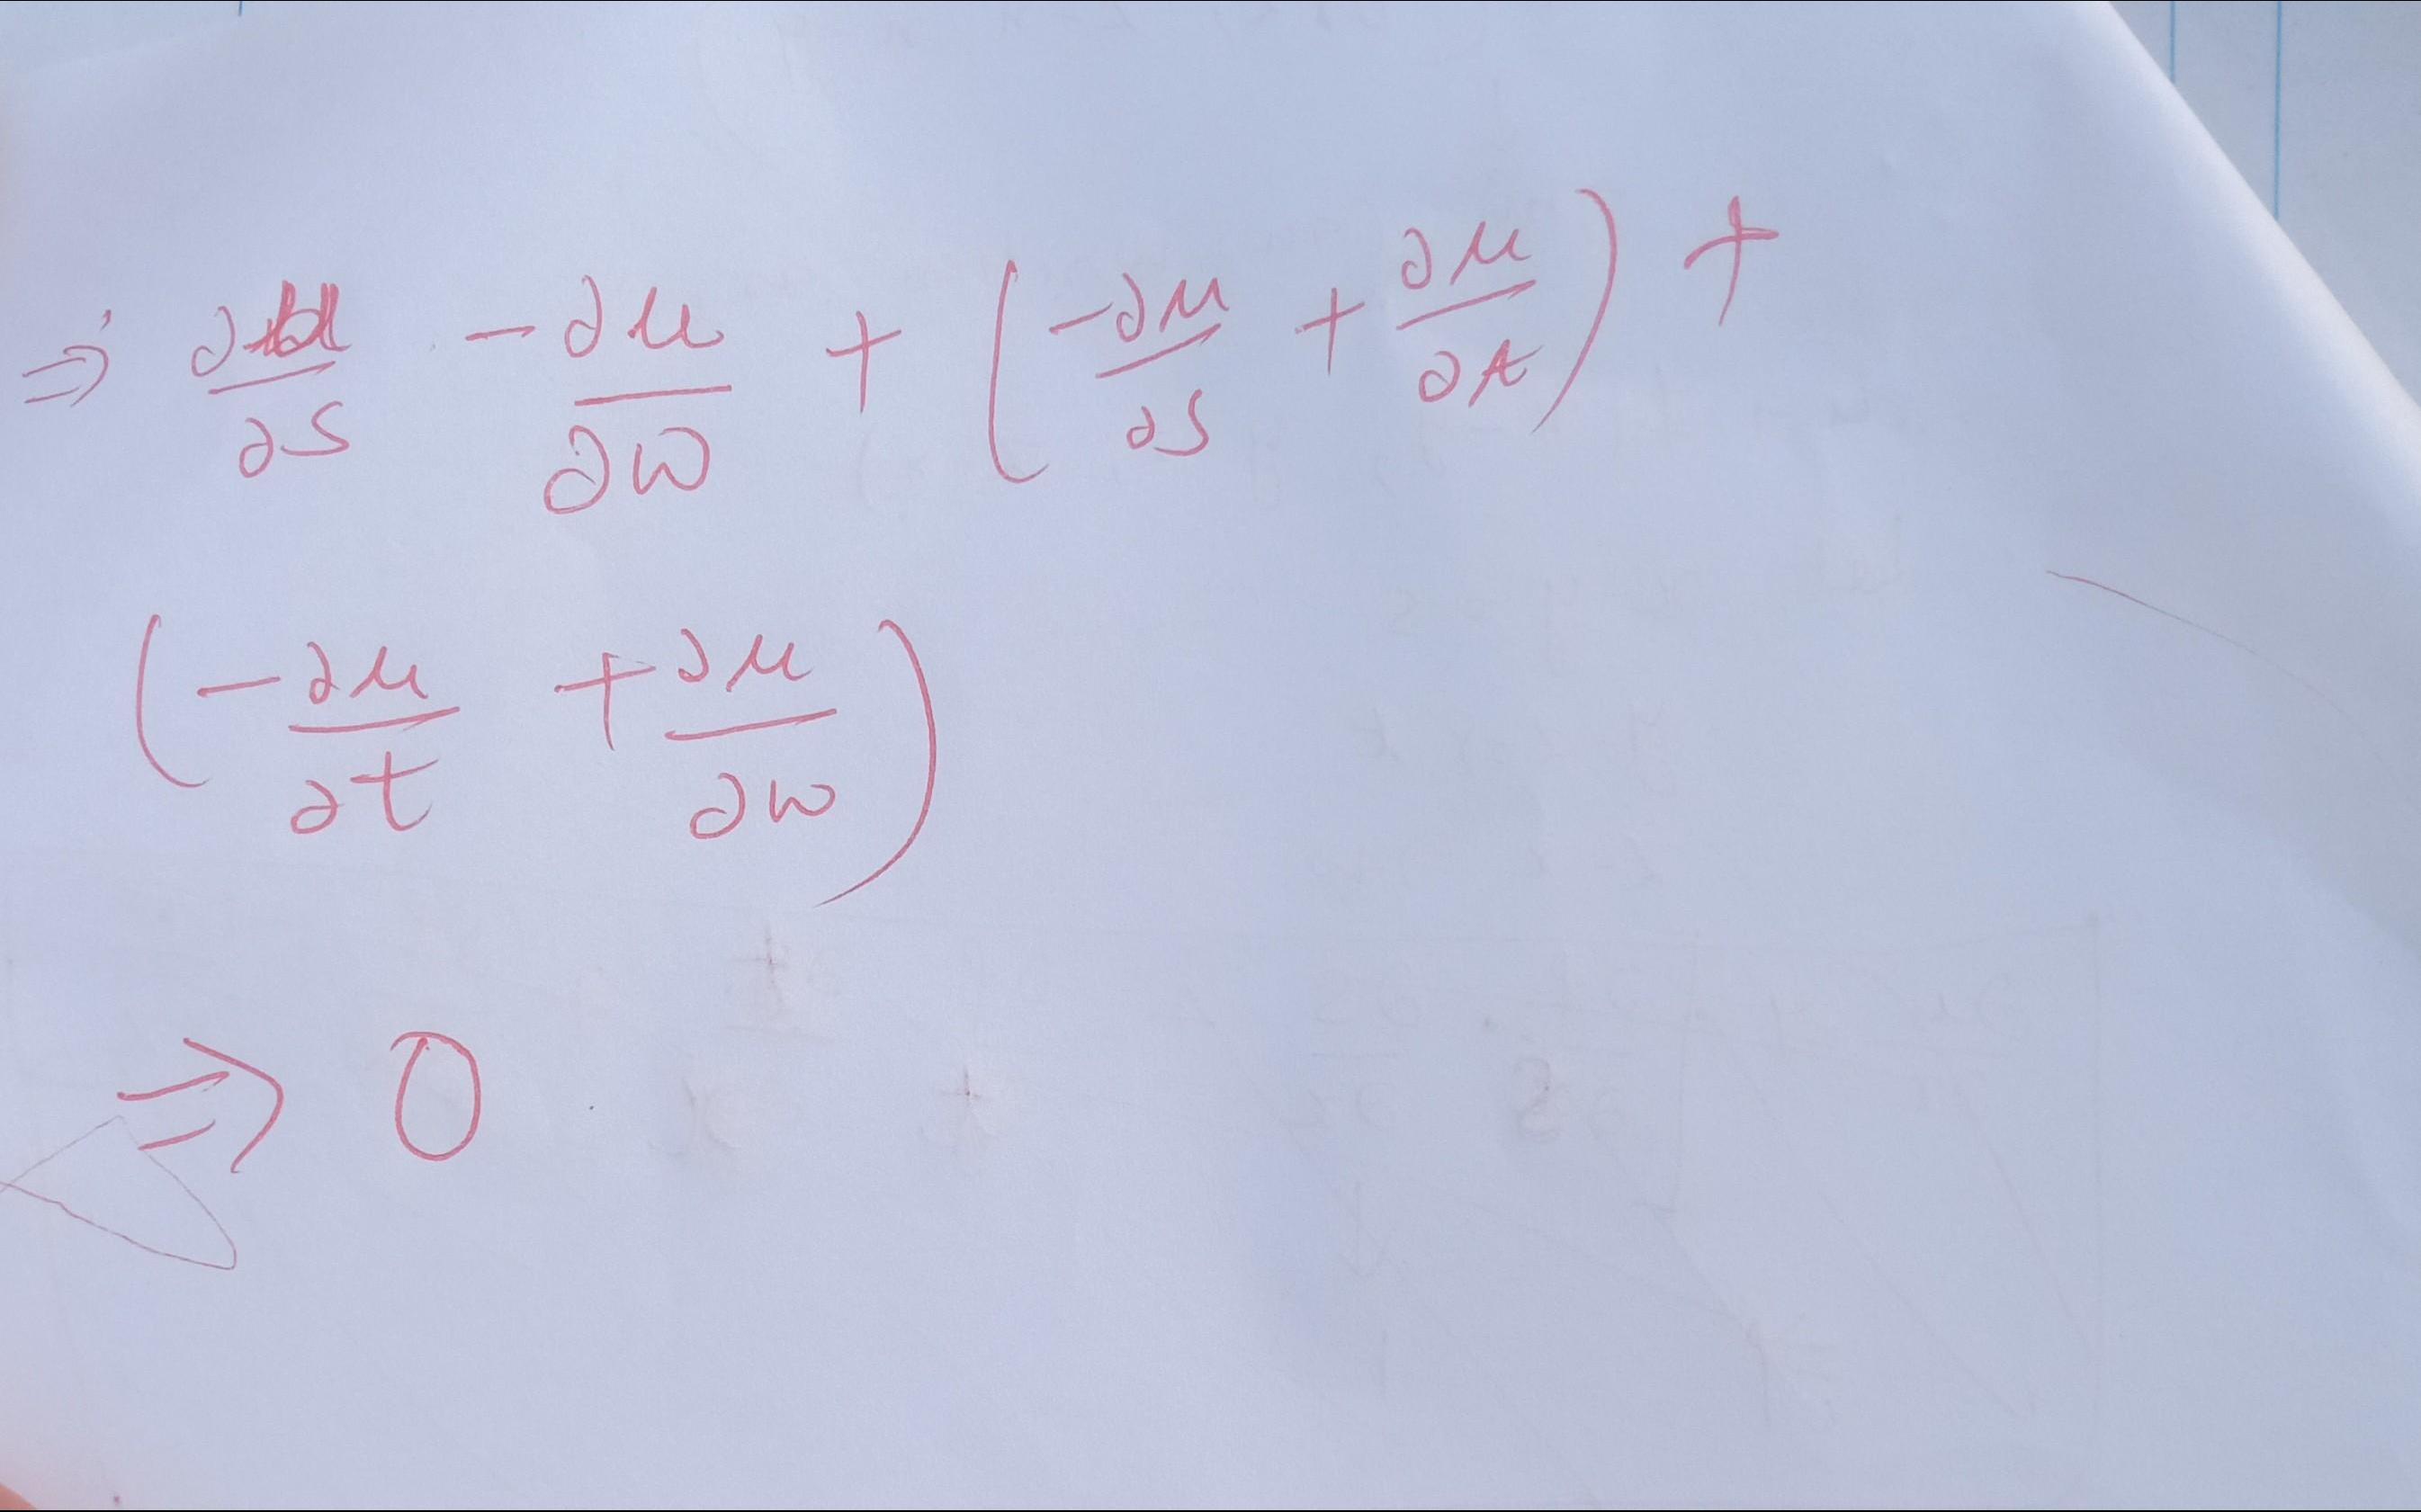 ⇒ ∂u/∂s - ∂u/∂w + (-∂u/∂s + ∂u/∂t) +
(-∂u/∂t + ∂u/∂w)
⇒ 0